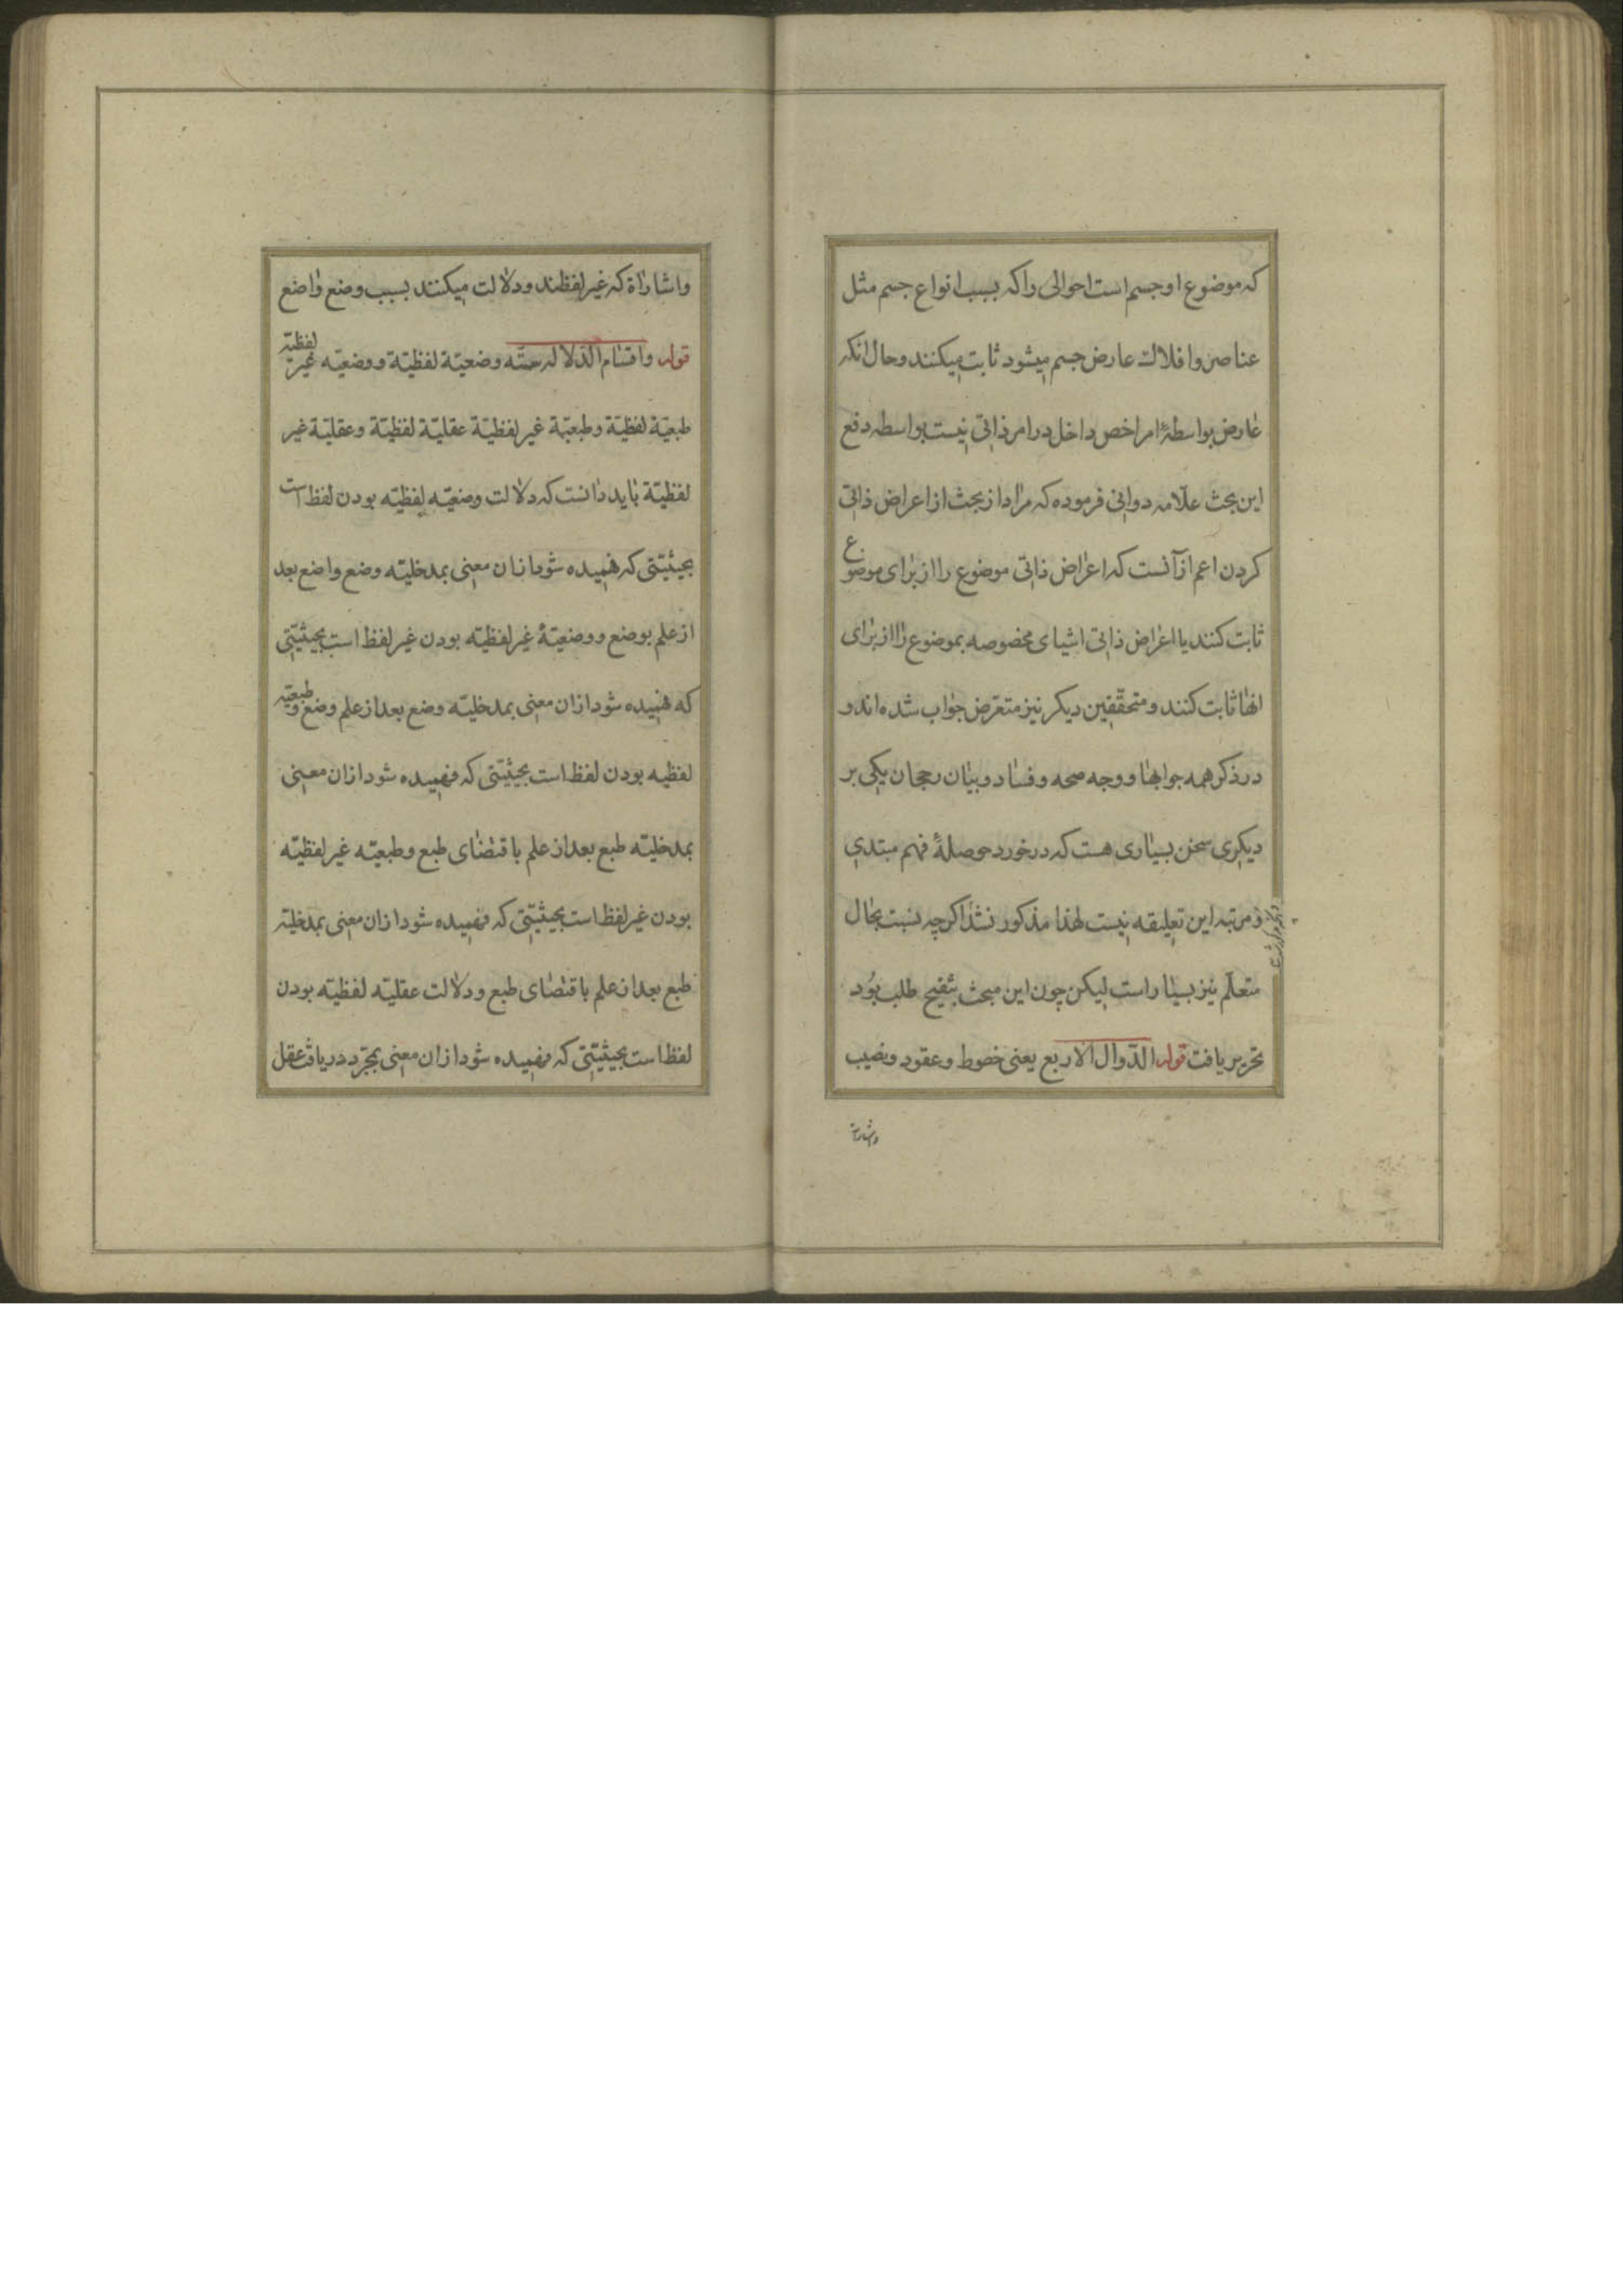 که موضوع او جسم است احوالی را که بسبب انواع جسم مثل
عناصر و افلاک عارض جسم میشود ثابت میکنند و حال انکه
عارض بواسطهٔ امر اخص داخل در امر ذاتی نیست بواسطه دفع
این بحث علّامه دوانی فرموده که مراد از بحث از اعراض ذاتی
کردن اعم از آنست که اعراض ذاتی موضوع را از برای موضوع
ثابت کنند یا اعراض ذاتی اشیای مخصوصه بموضوع را از برای
انها ثابت کنند و محقّقین دیکر نیز متعرّض جواب شده اند و
در ذکر همه جوابها و وجه صحه و فساد و بیان رجحان یکی بر
دیکری سخن بسیاری هست که در خورد حوصلهٔ فهم مبتدی
و مرتبه این تعلیقه نیست لهذا مذکور نشد اکرچه نسبت بحال
متعلّم نیز بسیار است لیکن چون این مبحث تنقیح طلب بود
تحریر یافت قوله الدّوال الاربع یعنی خطوط و عقود و نصب
واشارات
واشاراة که غیر لفظند و دلالت میکنند بسبب وضع واضع
قوله واقسام الدّلاله ستّه وضعیّة لفظیّة ووضعیّه غیر لفظیّة
طبعیّة لفظیّة وطبعیّة غیر لفظیّة عقلیّة لفظیّة وعقلیّة غیر
لفظیّة باید دانست که دلالت وضعیّه لفظیّه بودن لفظ است
بحیثیّتی که فهمیده شود ازان معنی بمدخلیّه وضع واضع بعد
از علم بوضع و وضعیّهٔ غیر لفظیّه بودن غیر لفظ است بحیثیّتی
که فهمیده شود ازان معنی بمدخلیّه وضع بعد از علم وضع وطبعیّه
لفظیه بودن لفظ است بحیثیّتی که فهمیده شود ازان معنی
بمدخلیّه طبع بعد از علم باقتضای طبع وطبعیّه غیر لفظیّه
بودن غیر لفظ است بحیثیّتی که فهمیده شود ازان معنی بمدخلیّه
طبع بعد از علم باقتضای طبع ودلالت عقلیّه لفظیّه بودن
لفظ است بحیثیّتی که فهمیده شود ازان معنی بمجرّد دریافت عقل